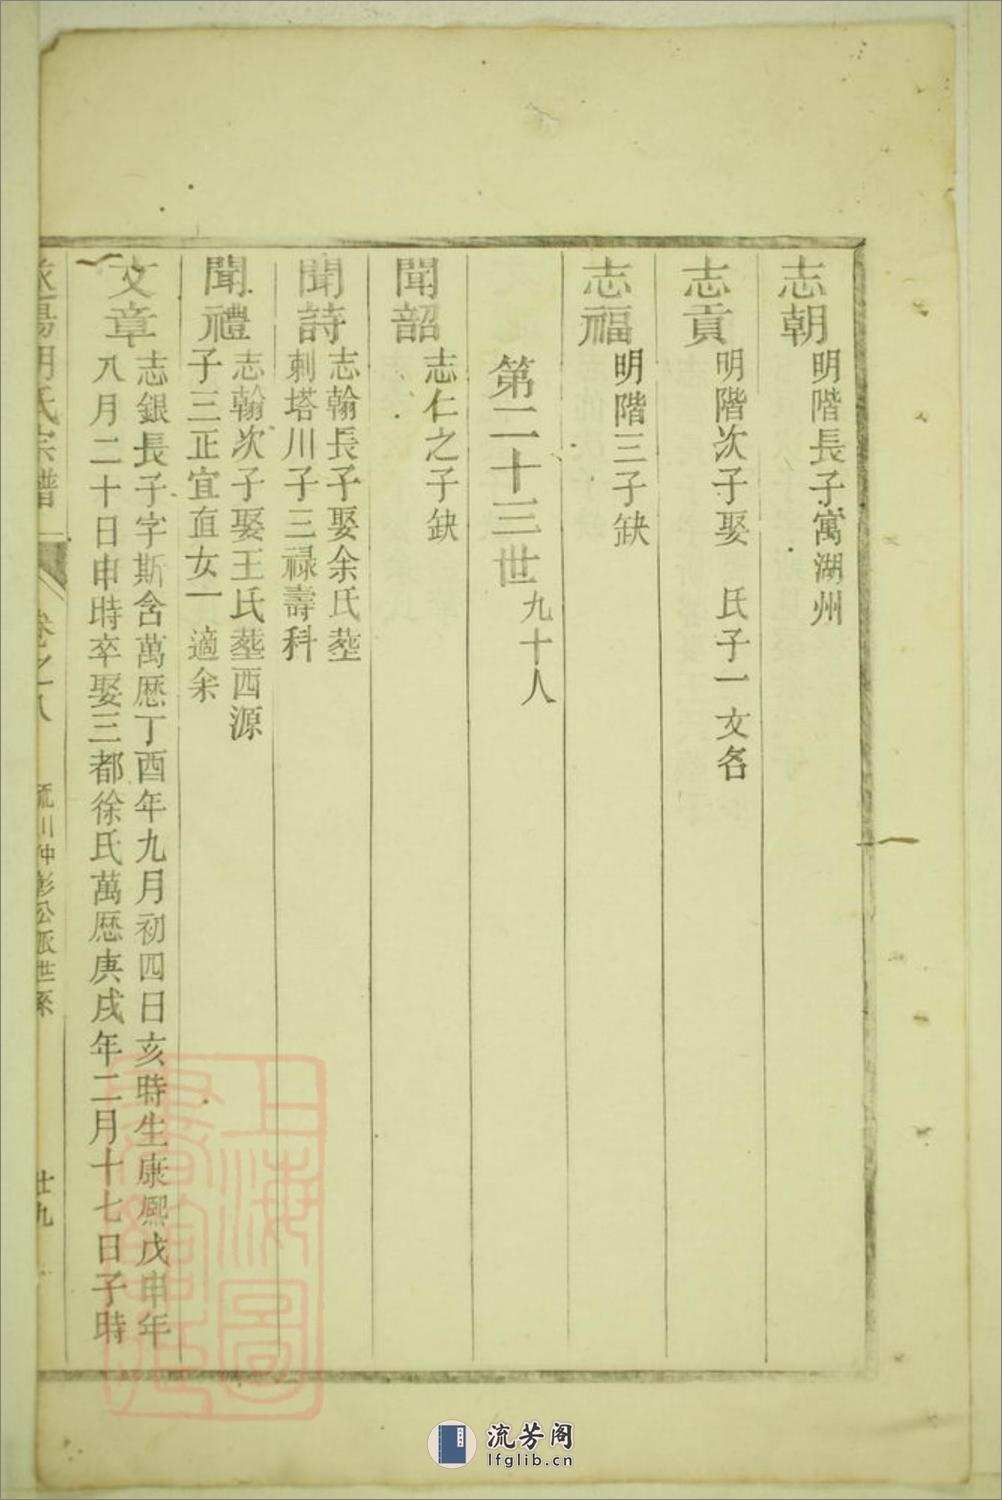 志朝 明階長子寓湖州
志貢 明階次子娶 氏子一文各
志福 明階三子缺
第二十三世 九十人
聞韶 志仁之子缺
聞詩 志翰長子娶余氏塟
刺塔川子三祿壽科
聞禮 志翰次子娶王氏塟西源
子三正宜直女一適余
文章 志銀長子字斯含萬歷丁酉年九月初四日亥時生康熙戊申年
八月二十日申時卒娶三都徐氏萬歷庚戌年二月十七日子時
胡氏宗譜 卷之八 流川仲彰公派世系 廿九
上海圖書館藏
流芳阁
lfglib.cn